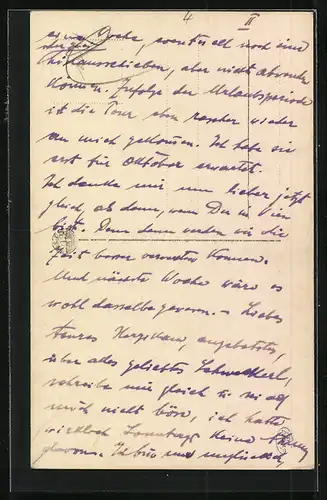 4 II
eine Woche, eventuell noch eine
hinausschieben, aber nicht absolut
können. Infolge der Urlaubsperiode
ist die Tour eben rascher wieder
an mich gekommen. Ich habe sie
erst für Oktober erwartet.
Ich danke mir nun lieber jetzt
gleich, als dann, wenn Du in Wien
bist. Denn dann werden wir die
Zeit besser verwenden können.
Und nächste Woche wäre es
wohl dasselbe gewesen. – Liebes
teures Herzikau, angebetetes,
über alles geliebtes
schreibe mir gleich u. sei auf
mich nicht böse, ich hatte
wirklich Sonntags keine
Ich bin unglücklich